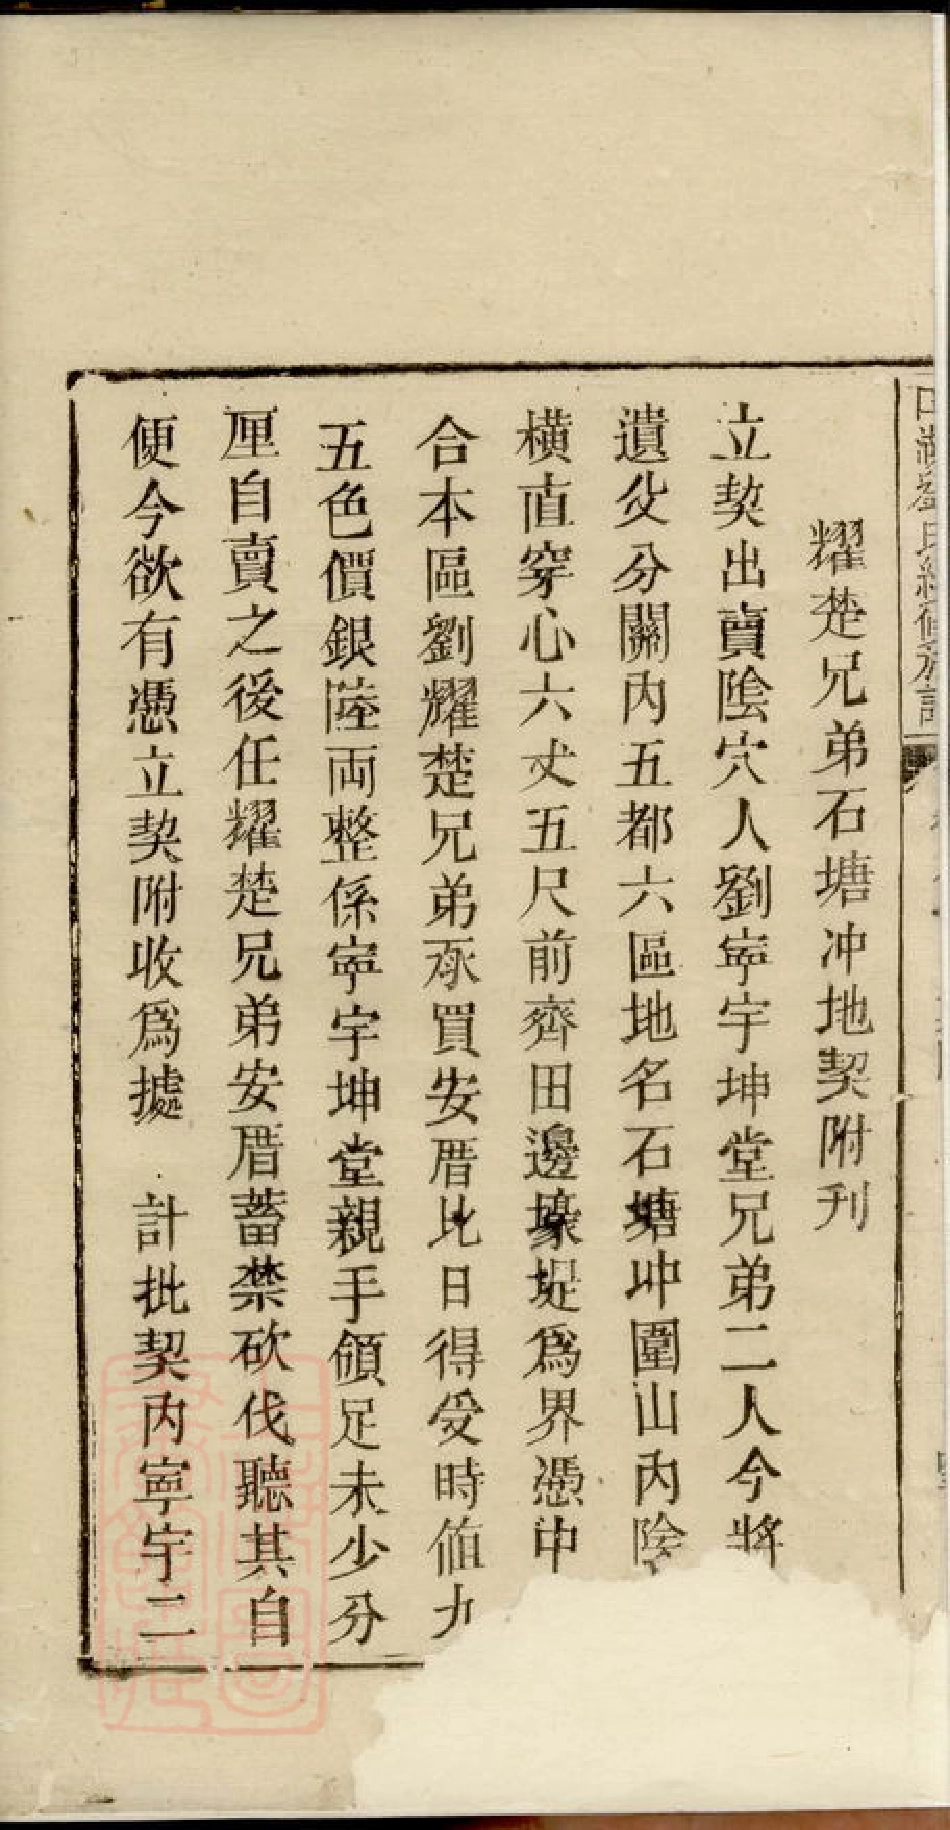 劉氏續修族記
耀楚兄弟石塘冲地契附刊
立契出賣陰穴人劉寧宇坤堂兄弟二人今將
遺父分關內五都六區地名石塘冲圍山內陰
橫直穿心六丈五尺前齊田邊壕堤爲界憑中
合本區劉耀楚兄弟承買安厝比日得受時值九
五色價銀陸両整係寧宇坤堂親手領足未少分
厘自賣之後任耀楚兄弟安厝蓄禁砍伐聽其自
便今欲有憑立契附收爲據 計批契內寧宇二